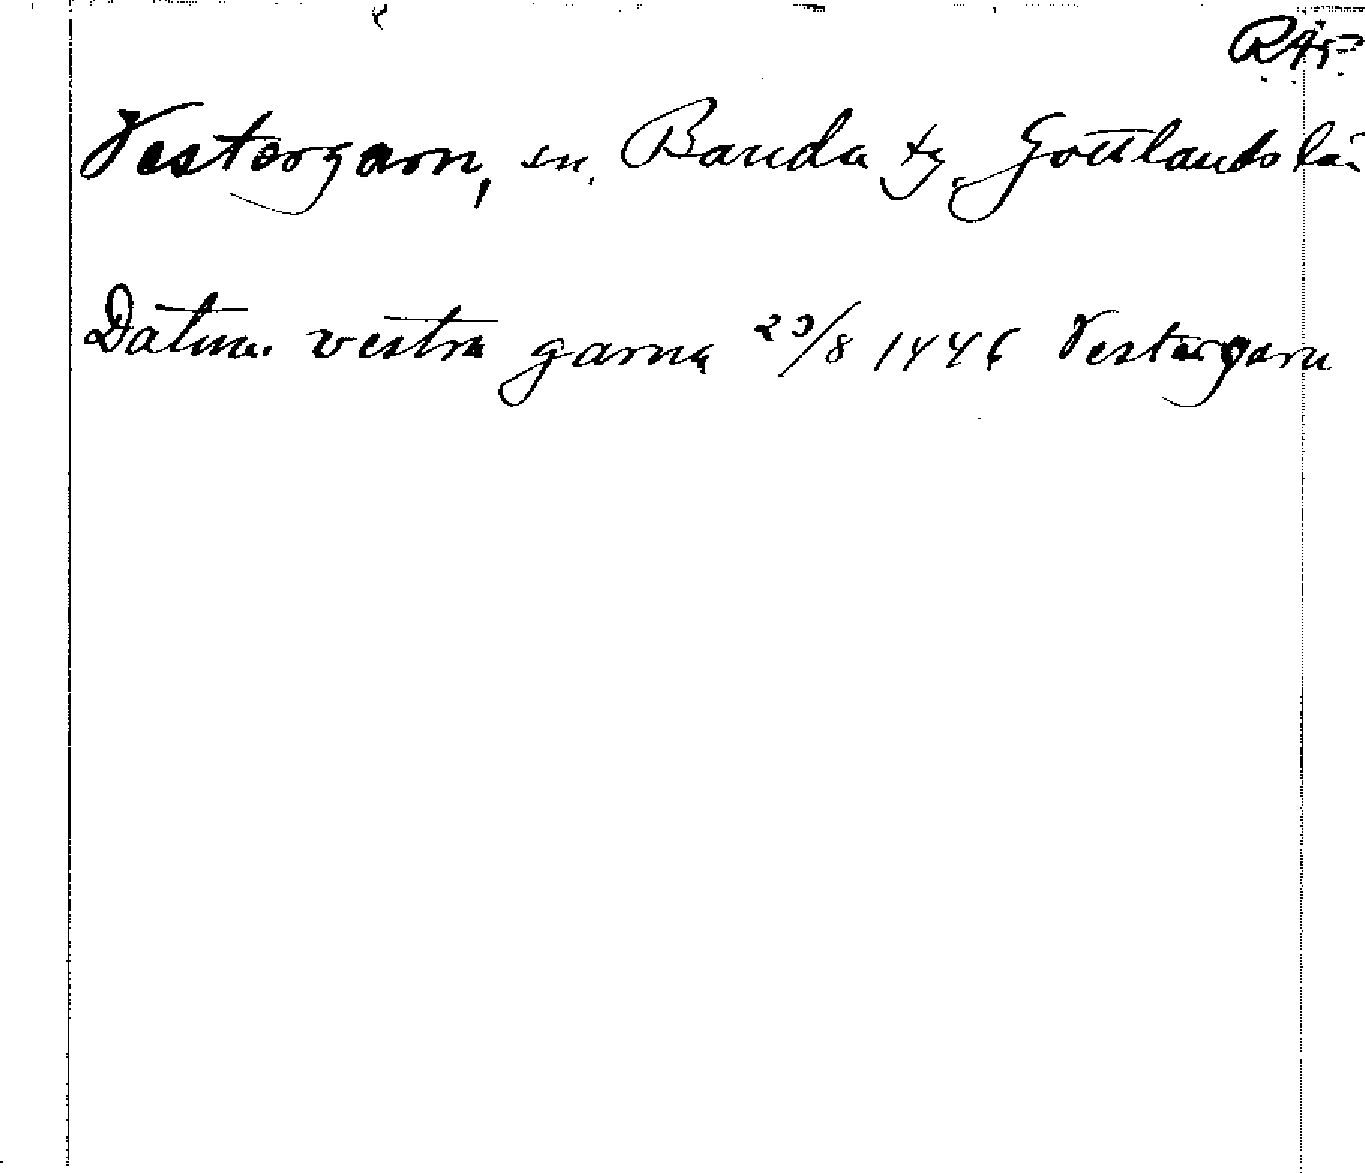 RAp
Vestergarn, sn, Banda tg, Gottlands län
Datum vestra garna 20/8 1446 Vestergarn